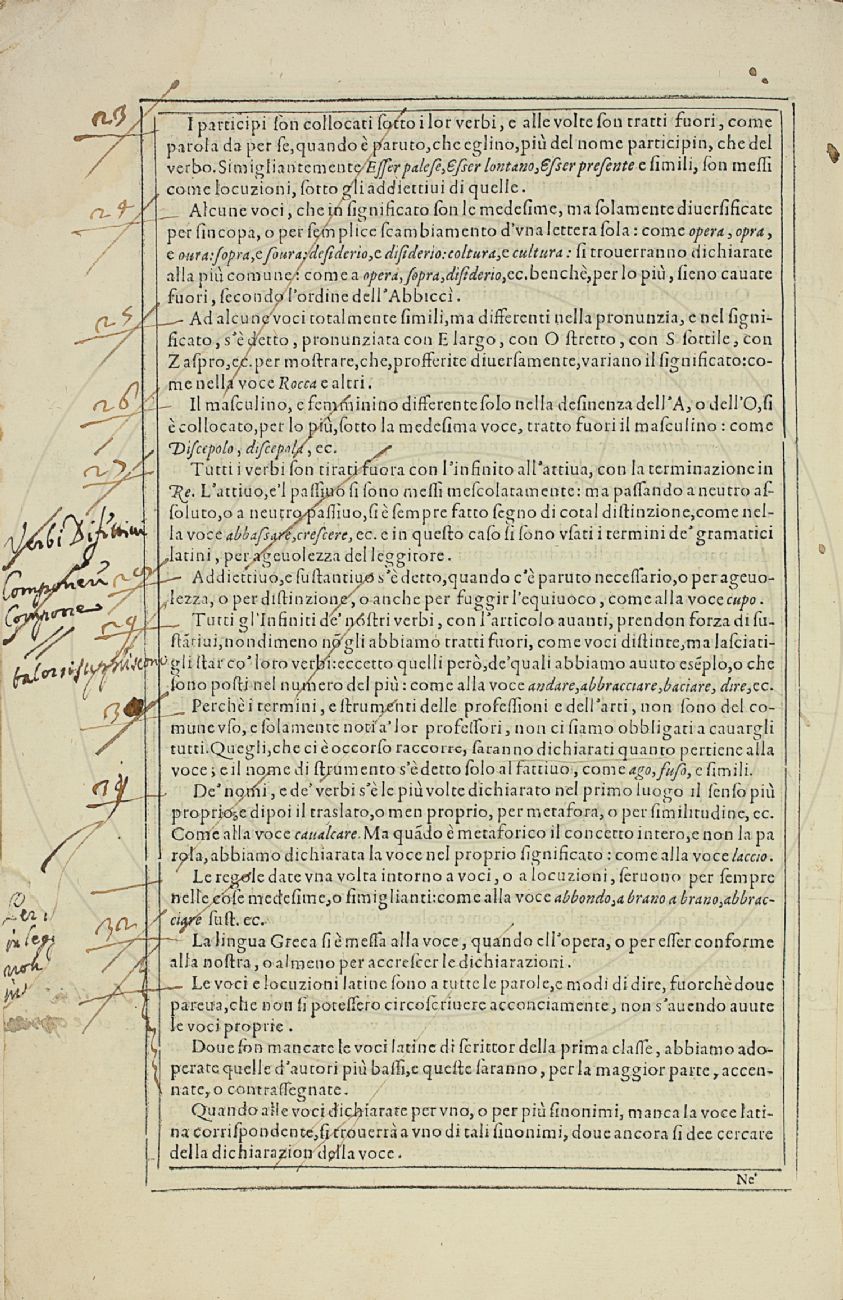 23
I participi ſon collocati ſotto i lor verbi, e alle volte ſon tratti fuori, come
parola da per ſe, quando è paruto, che eglino, più del nome participin, che del
verbo. Simigliantemente Eſſer paleſe, Eſſer lontano, Eſſer preſente e ſimili, ſon meſſi
come locuzioni, ſotto gli addiettiui di quelle.
24
Alcune voci, che in ſignificato ſon le medeſime, ma ſolamente diuerſificate
per ſincopa, o per ſemplice ſcambiamento d'vna lettera ſola: come opera, opra,
e oura: ſopra, e ſoura; deſiderio, e diſiderio: coltura, e cultura: ſi trouerranno dichiarate
alla più comune: come a opera, ſopra, diſiderio, ec. benchè, per lo più, ſieno cauate
fuori, ſecondo l'ordine dell'Abbiccì.
25
Ad alcune voci totalmente ſimili, ma differenti nella pronunzia, e nel ſigni-
ficato, s'è detto, pronunziata con E largo, con O ſtretto, con S ſottile, con
Z aſpro, ec. per moſtrare, che, profferite diuerſamente, variano il ſignificato: co-
me nella voce Rocca e altri.
26
Il maſculino, e femminino differente ſolo nella deſinenza dell'A, o dell'O, ſi
è collocato, per lo più, ſotto la medeſima voce, tratto fuori il maſculino: come
Diſcepolo, diſcepola, ec.
27
Tutti i verbi ſon tirati fuora con l'infinito all'attiua, con la terminazione in
Re. L'attiuo, e'l paſſiuo ſi ſono meſſi meſcolatamente: ma paſſando a neutro aſ-
ſoluto, o a neutro paſſiuo, ſi è ſempre fatto ſegno di cotal diſtinzione, come nel-
la voce abbaſſare, creſcere, ec. e in queſto caſo ſi ſono vſati i termini de' gramatici
latini, per ageuolezza del leggitore.
Verbi
Componere
Addiettiuo, e ſuſtantiuo s'è detto, quando c'è paruto neceſſario, o per ageuo-
lezza, o per diſtinzione, o anche per fuggir l'equiuoco, come alla voce cupo.
29
Tutti gl'Infiniti de' noſtri verbi, con l'articolo auanti, prendon forza di ſu-
ſtãtiui, nondimeno nõ gli abbiamo tratti fuori, come voci diſtinte, ma laſciati-
gli ſtar co' loro verbi: eccetto quelli però, de' quali abbiamo auuto eſẽplo, o che
ſono poſti nel numero del più: come alla voce andare, abbracciare, baciare, dire, ec.
Perchè i termini, e ſtrumenti delle profeſſioni e dell'arti, non ſono del co-
mune vſo, e ſolamente noti a' lor profeſſori, non ci ſiamo obbligati a cauargli
tutti. Quegli, che ci è occorſo raccorre, ſaranno dichiarati quanto pertiene alla
voce; e il nome di ſtrumento s'è detto ſolo al fattiuo, come ago, fuſo, e ſimili.
De' nomi, e de' verbi s'è le più volte dichiarato nel primo luogo il ſenſo più
proprio, e dipoi il traslato, o men proprio, per metafora, o per ſimilitudine, ec.
Come alla voce caualcare. Ma quãdo è metaforico il concetto intero, e non la pa
rola, abbiamo dichiarata la voce nel proprio ſignificato: come alla voce laccio.
Le regole date vna volta intorno a voci, o a locuzioni, ſeruono per ſempre
nelle coſe medeſime, o ſimiglianti: come alla voce abbondo, a brano a brano, abbrac-
ciare ſuſt. ec.
32
La lingua Greca ſi è meſſa alla voce, quando ell'opera, o per eſſer conforme
alla noſtra, o almeno per accreſcer le dichiarazioni.
Le voci e locuzioni latine ſono a tutte le parole, e modi di dire, fuorchè doue
pareua, che non ſi poteſſero circoſcriuere acconciamente, non s'auendo auute
le voci proprie.
Doue ſon mancate le voci latine di ſcrittor della prima claſſe, abbiamo ado-
perate quelle d'autori più baſſi, e queſte ſaranno, per la maggior parte, accen-
nate, o contraſſegnate.
Quando alle voci dichiarate per vno, o per più ſinonimi, manca la voce lati-
na corriſpondente, ſi trouerrà a vno di tali ſinonimi, doue ancora ſi dee cercare
della dichiarazion della voce.
Ne'